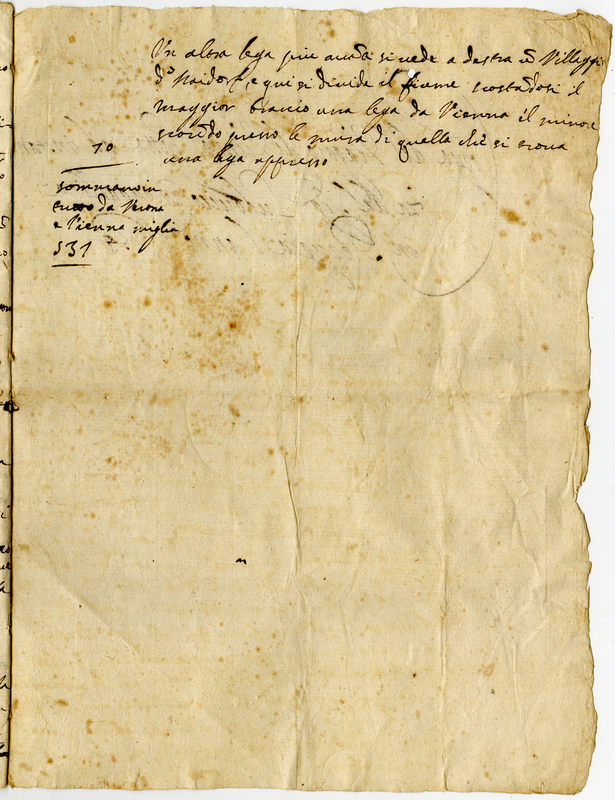 Un altra lega più avāti si vede a destra ū Villaggio
d.º Naidorf, e qui si divide il fiume scostādosi il
maggior braccio una lega da Vienna il minore
scorrēdo presso le mura di quella che si trova
una lega appresso
10
sommano in
tutto da Verona
a Vienna miglia
531